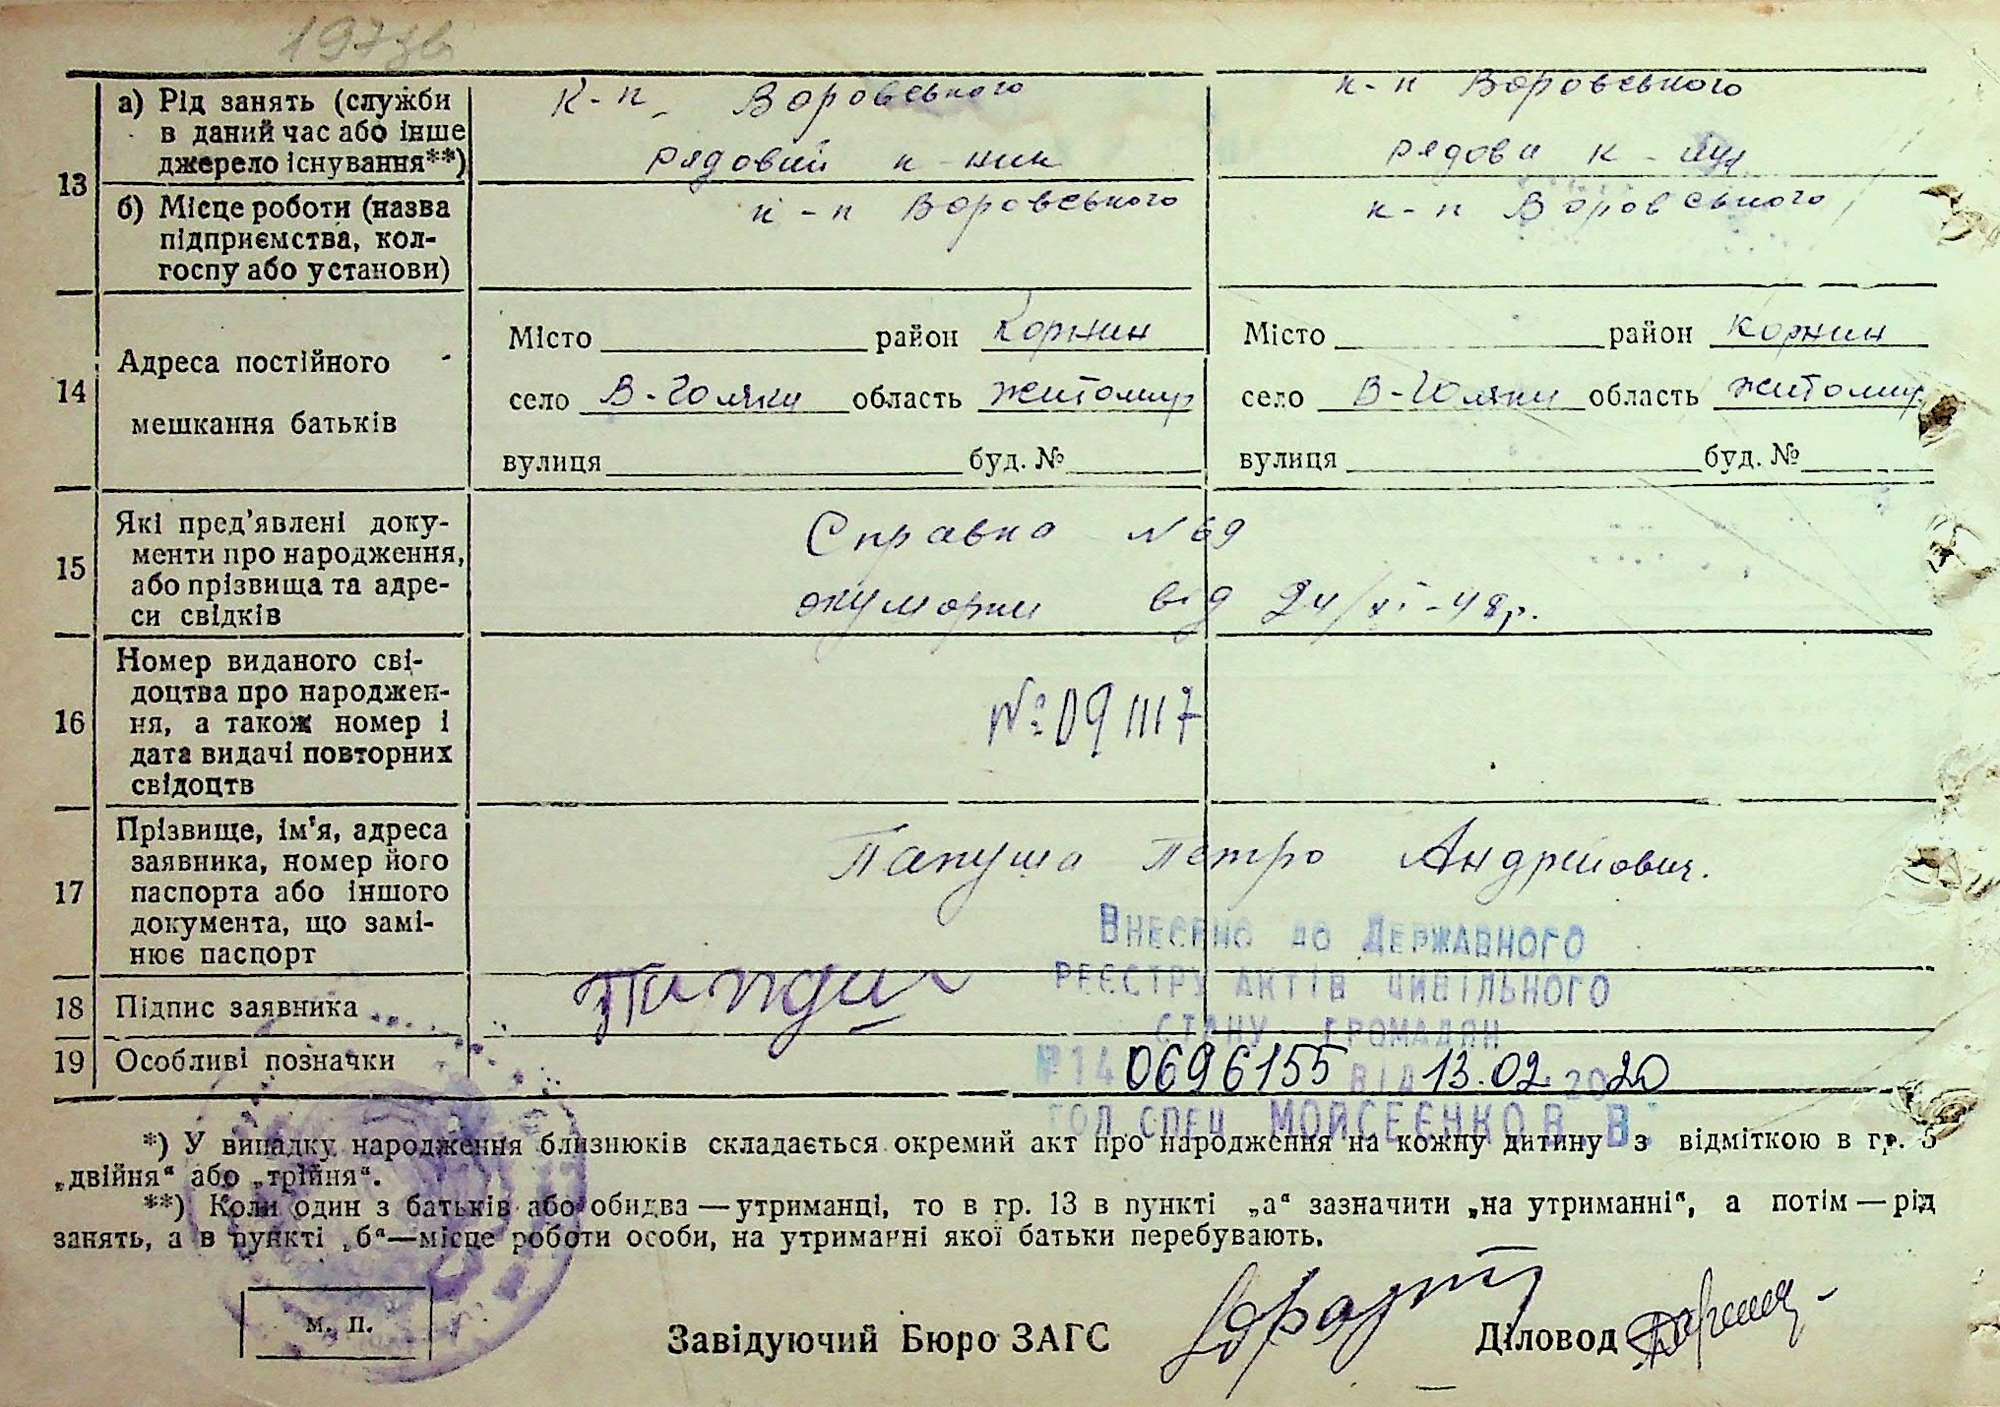 13
а) Рід занять (служби
в даний час або інше
джерело існування**)
к-п Воровського
рядовий к-ник
к-п Воровського
рядова к-
б) Місце роботи (назва
підприємства, кол-
госпу або установи)
к-п Воровського
к-п Воровського
14
Адреса постійного
мешкання батьків
Місто район Корнин
село В-Голяки область Житомир
вулиця буд. №
Місто район Корнин
село В-Голяки область Житомир
вулиця буд. №
15
Які пред'явлені доку-
менти про народження,
або прізвища та адре-
си свідків
Справка №69
від 24/XI-48р.
16
Номер виданого сві-
доцтва про народжен-
ня, а також номер і
дата видачі повторних
свідоцтв
№ 091117
17
Прізвище, ім'я, адреса
заявника, номер його
паспорта або іншого
документа, що замі-
нює паспорт
Папуша Петро Андрійович.
18 Підпис заявника
19 Особливі позначки
Внесено до Державного
реєстру актів цивільного
стану громадян
№14 0696155 від 13.02.2020
гол.спец. Мойсеєнко В.В.
*) У випадку народження близнюків складається окремий акт про народження на кожну дитину з відміткою в гр. 5
„двійня“ або „трійня“.
**) Коли один з батьків або обидва—утриманці, то в гр. 13 в пункті „а“ зазначити „на утриманні“, а потім—рід
занять, а в пункті „б“—місце роботи особи, на утриманні якої батьки перебувають.
м. п.
Завідуючий Бюро ЗАГС
Діловод